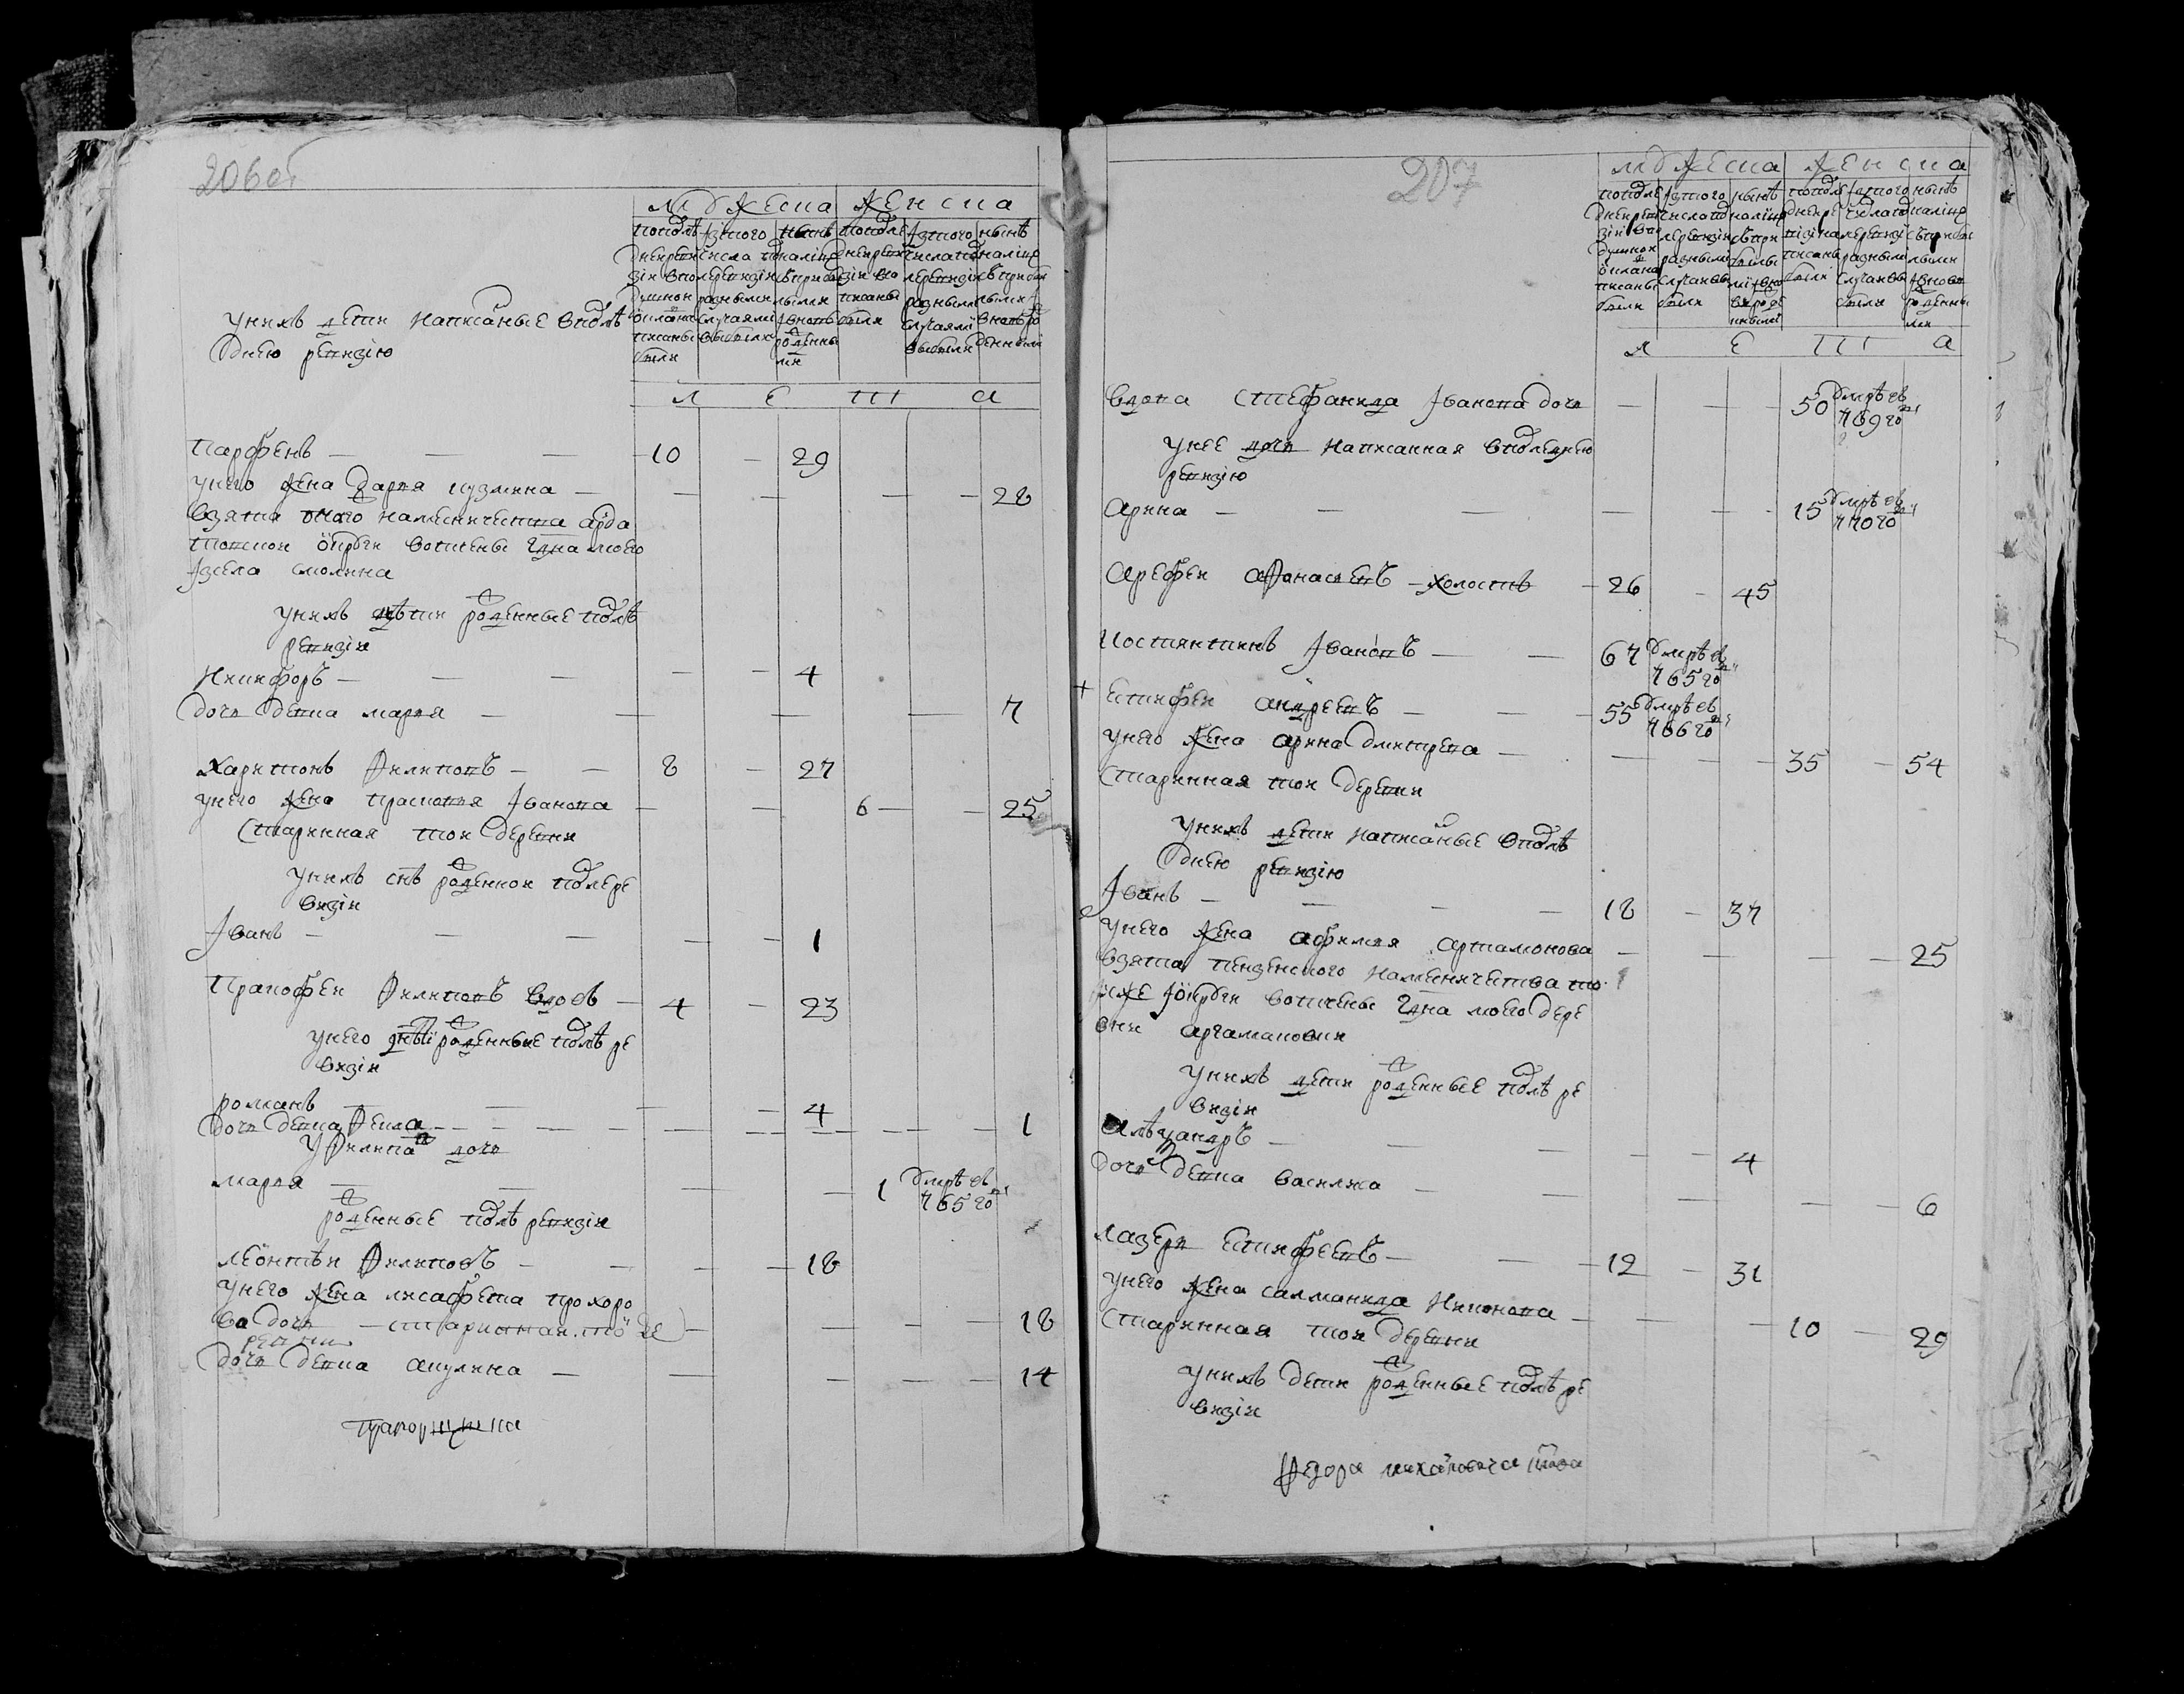 206об
мужеска женска
по последней ревизии в подушной оклад написаны были
из того числа после ревизии разными случаями выбыли
ныне налицо с прибылыми и вновь рожденными
по последней ревизии написаны были
из того числа после ревизии разными случаями выбыли
ныне налицо с прибылыми и вновь рожденными
л е т а
у нихъ дети написаные в последнею ревизию
Парфенъ — — — 10 — 29
у него жена Дарья Кузмина — — — — — 28
взята онаго наместничества арда
товской округи вотчены гдна моего
из села
у нихъ дѣти рожденные послѣ
ревизіи
Никифоръ — — — — — 4
дочь девка марья — — — — 7
Харитонъ Филиповъ — — 8 — 27
у него жена Прасковья Иванова — — 6 — — 25
старинная той деревни
у нихъ снъ рожденной после ре
визіи
Иванъ — — — — — 1
Пракофеи Филиповъ вдовъ — 4 — 23
у него дѣти рожденные послѣ ре
визіи
романъ — — — — 4
дочь девка Фекла — — — — — — — — 1
у Филипа дочь
марья — — — — 1 умрѣ въ 765 го
рожденные послѣ ревизіи
леонтѣи Филиповъ — — — — 18
у него жена лисафета прохоро
ва дочь — старинная то де — — — — 18
ревни
дочь девка акулина — — — — — 14
прапорщика
207
мужеска женска
по последней ревизіи в подушной оклад написаны были
из того числа после ревизіи разными случаями выбыли
ныне налицо с прибылыми и вновь рожденными
по последней ревизіи написаны были
из того числа после ревизіи разными случаями выбыли
ныне налицо с прибылыми и вновь рожденными
л е т а
вдова Стефанида Иванова дочь — — — 50 умрѣ въ 769 го
у нее дочь написанная в последнею
ревизію
Арина — — — — — — 15 умрѣ въ 770 го
Арефеи Афонасьевъ — холостъ — 26 — 45
Костянтинъ Ивановъ — — 67 умрѣ въ 765 го
+ Естифеи андреевъ — — — 55 умрѣ въ 766 го
у него жена арина дмитрева — — — — 35 — 54
старинная той деревни
у нихъ дети написаные в послѣ
днею ревизію
Иванъ — — — — 18 — 37
у него жена афимья артамонова — — — — 25
взята пензенского наместничества то
и же округи вотчены гдна моего дере
вни аргамановки
у нихъ дети рожденные послѣ ре
визіи
алѣксандръ — — — — — 4
дочь девка василиса — — — — — 6
лазерь Естифеевъ — — — 12 — 31
у него жена салманида Никонова — — — 10 — 29
старинная той деревни
у нихъ дети рожденные послѣ ре
визіи
Федора михаиловича